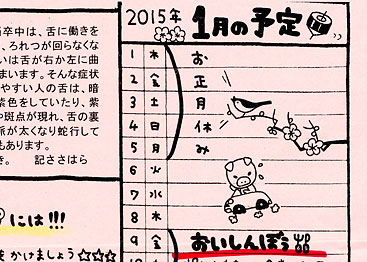 卒中は、舌に働きを
、ろれつが回らなくな
いは舌が右か左に曲
まいます。そんな症状
やすい人の舌は、暗
紫色をしていたり、紫
や斑点が現れ、舌の裏
脈が太くなり蛇行して
もあります。
き。 記ささはら
には!!!
をかけましょう☆☆☆
2015年 1月の予定
1 木 お
2 金 正
3 土 月
4 日 休
5 月 み
6 火
7 水
8 木
9 金 おいしんぼう